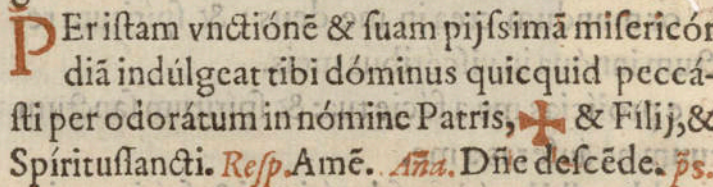 PEr iſtam vnctiónẽ & ſuam pijſsimã miſericór
diã indúlgeat tibi dóminus quicquid peccá-
ſti per odorátum in nómine Patris, ✠ & Fílij, &
Spírituſſancti. Reſp. Amẽ. Aña. Dñe deſcẽde. p̃s.